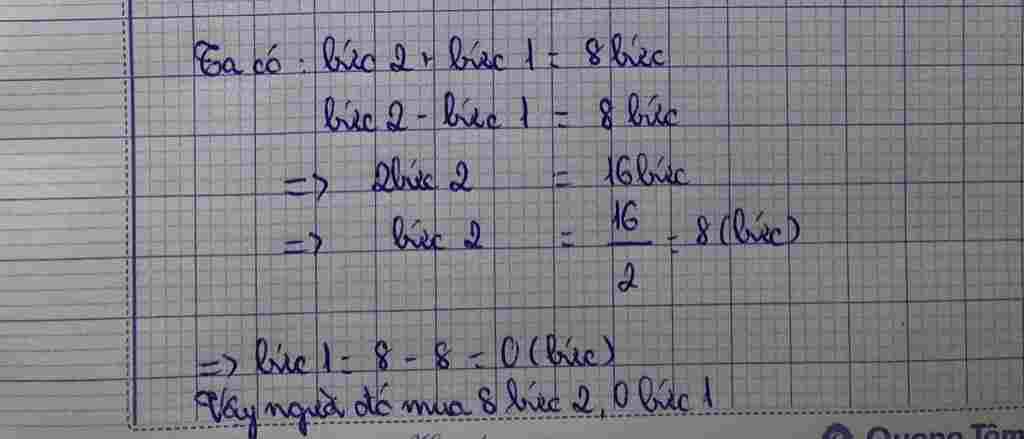 Ta có : bức 2 + bức 1 = 8 bức
bức 2 - bức 1 = 8 bức
=> 2 bức 2 = 16 bức
=> bức 2 = 16/2 = 8 (bức)
=> bức 1 = 8 - 8 = 0 (bức)
Vậy người đó mua 8 bức 2, 0 bức 1
Quang Tâm